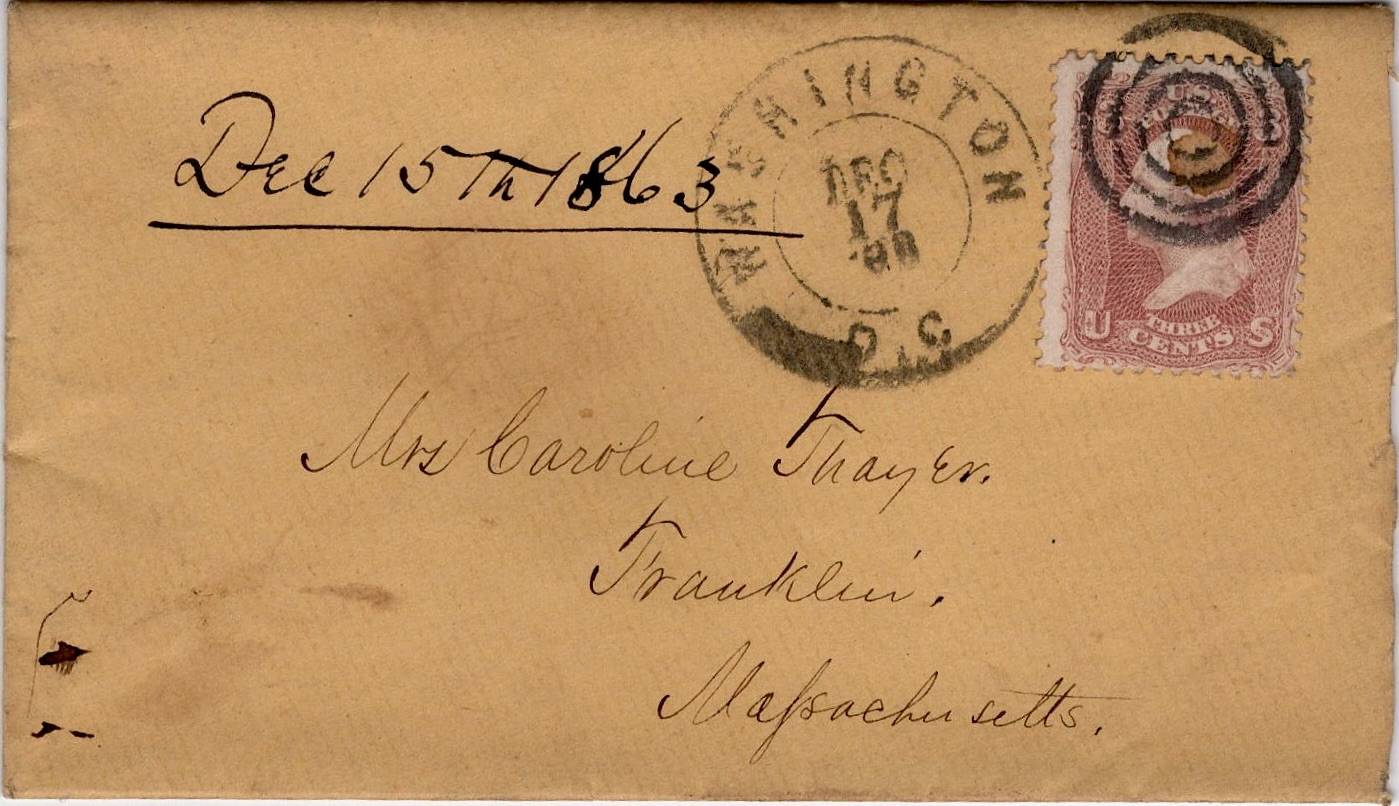 Dec 15Th 1863
WASHINGTON
DEC
17
D.C.
U.S.
3 3
U THREE S
CENTS
Mrs Caroline Thayer.
Franklin.
Maſsachusetts.